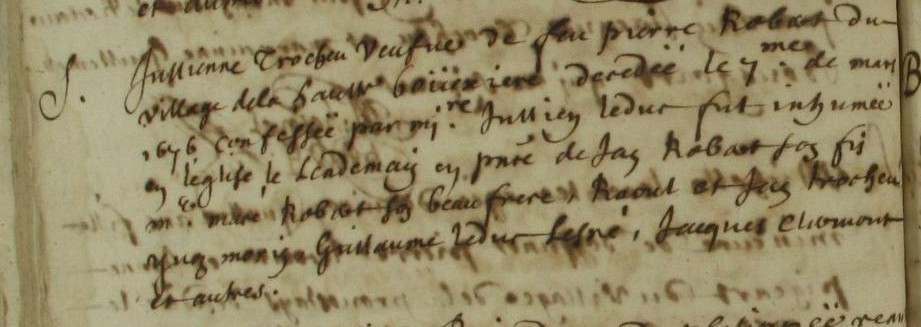 et autres
S. Jullienne Trocheu veufue de feu pierre Robart du
village de la haulte boüexiere decedëe le 7.me de mars
1676 confessëe par mi.re Jullien leduc fut inhumëe
en léglise le lendemain en pnce de Jan Robart son fis
m.e marc Robart son beaufrere, Raoul et Jan trocheu
Guillaume leduc lesné, Jacques Clermont
et autres.